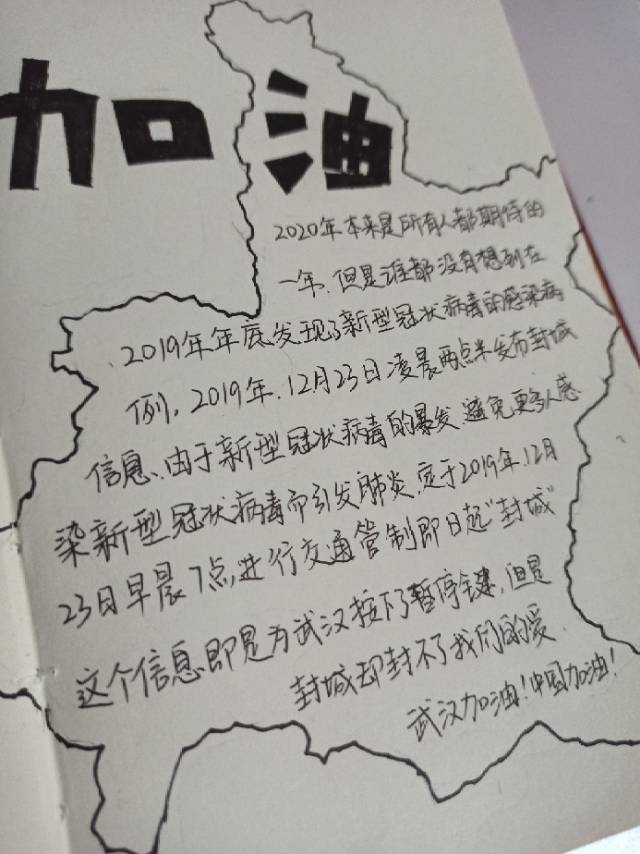 加油
2020年本来是所有人都期待的
一年、但是谁都没有想到在
、2019年年底发现了新型冠状病毒的感染病
例，2019年、12月23日凌晨两点半发布封城
信息、由于新型冠状病毒的暴发、避免更多人感
染新型冠状病毒而引发肺炎、定于2019年、12月
23日早晨7点，进行交通管制即日起“封城”
这个信息、即是为武汉按下了暂停键、但是
封城却封不了我们的爱、
武汉加油！中国加油！